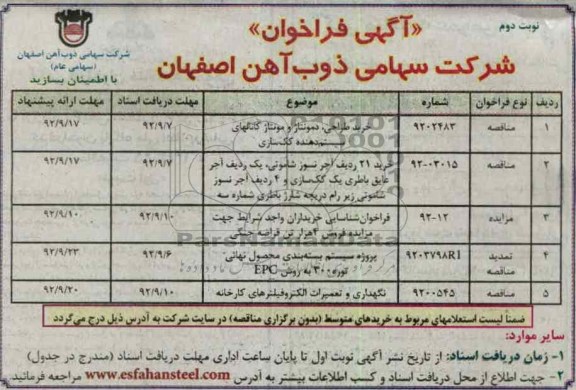 نوبت دوم
«آگهی فراخوان»
شرکت سهامی ذوب‌آهن اصفهان
شرکت سهامی ذوب‌آهن اصفهان
(سهامی عام)
با اطمینان بسازید
ردیف نوع فراخوان شماره موضوع مهلت دریافت اسناد مهلت ارائه پیشنهاد
۱ مناقصه ۹۲۰۲۴۸۳ خرید طراحی، دمونتاژ و مونتاژ کانالهای ۹۲/۹/۷ ۹۲/۹/۱۷
سیستم‌دهنده کک‌سازی
۲ مناقصه ۹۲۰۰۳۰۱۵ خرید ۲۱ ردیف آجر نسوز شاموتی، یک ردیف آجر ۹۲/۹/۷ ۹۲/۹/۱۷
عایق باطری یک کک‌سازی و ۴ ردیف آجر نسوز
شاموتی زیر رام دریچه شارژ باطری شماره سه
۳ مزایده ۹۲-۱۲ فراخوان‌شناسایی خریداران واجد شرایط جهت ۹۲/۹/۱۰ ۹۲/۹/۱۰
مزایده فروش ۴هزار تن قراضه چینگی
۴ تمدید مناقصه ۹۲۰۳۷۹۸R1 پروژه سیستم بسته‌بندی محصول نهائی ۹۲/۹/۶ ۹۲/۹/۲۳
نورد ۳۰۰ به روش EPC
۵ مناقصه ۹۲۰۰۵۴۵ نگهداری و تعمیرات الکتروفیلترهای کارخانه ۹۲/۹/۱۰ ۹۲/۹/۲۰
ضمناً لیست استعلامهای مربوط به خریدهای متوسط (بدون برگزاری مناقصه) در سایت شرکت به آدرس ذیل درج می‌گردد
سایر موارد:
۱- زمان دریافت اسناد: از تاریخ نشر آگهی نوبت اول تا پایان ساعت اداری مهلت دریافت اسناد (مندرج در جدول)
۲- جهت اطلاع از محل دریافت اسناد و کسب اطلاعات بیشتر به آدرس www.esfahansteel.com مراجعه فرمائید
ParsNamadData